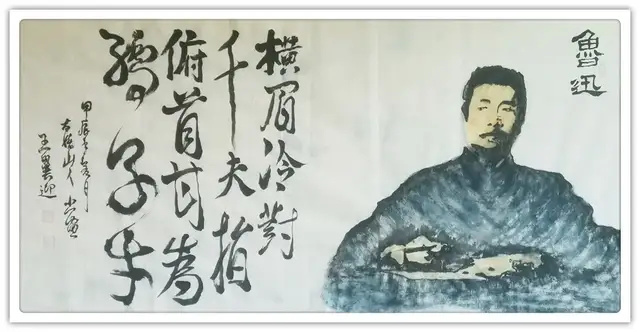 魯迅
橫眉冷對
千夫指
俯首甘為
孺子牛
甲辰年月
山人
王